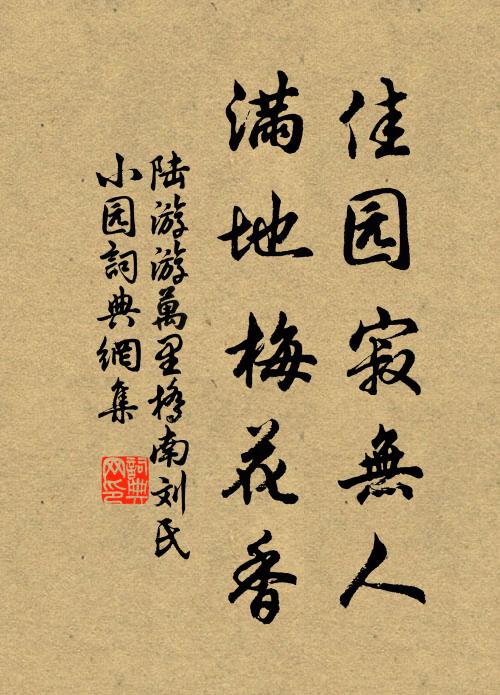 佳园寂無人
满地梅花香
陆游游萬里橋南刘氏
小园詞典網集
詞典网印